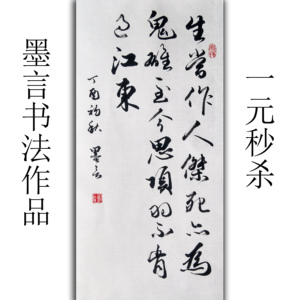 一元秒杀
生当作人傑死亦為
鬼雄至今思項羽不肯
過江東
丁酉初秋 墨言
墨言书法作品